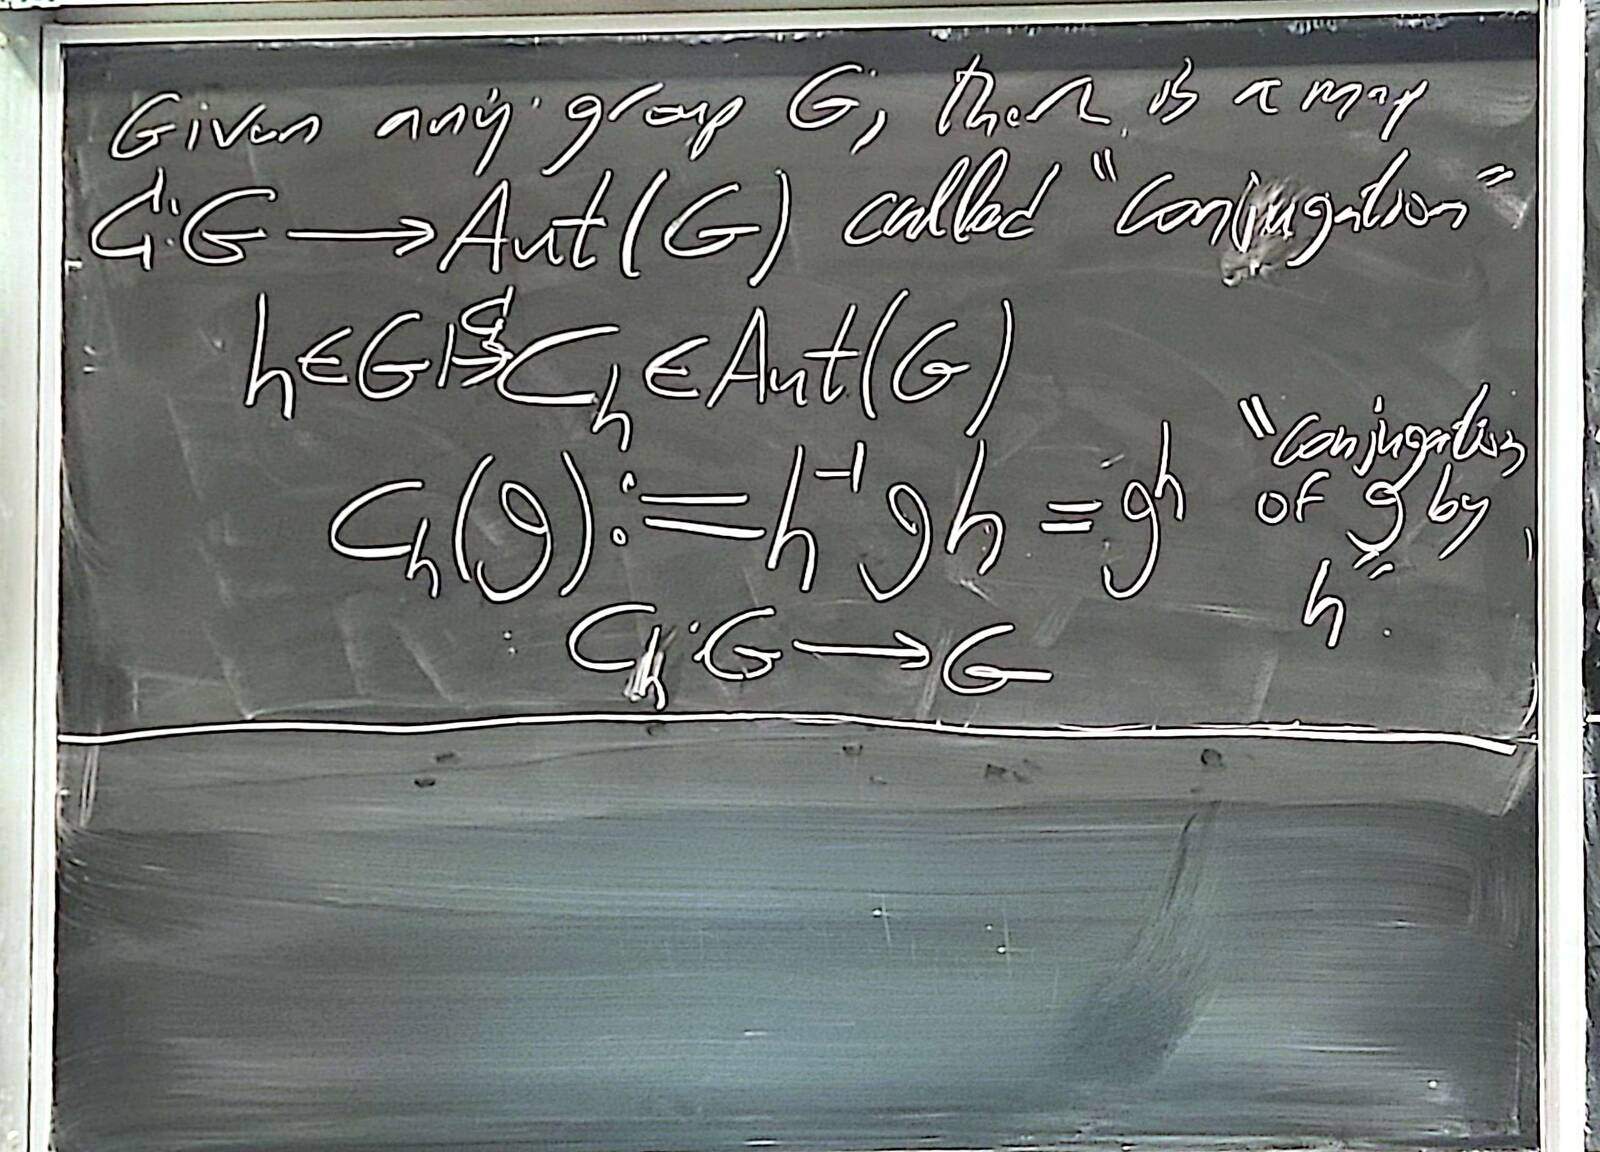 Given any group G, there is a map
C:G ⟶ Aut(G) called "Conjugation"
h∈G ↦ C_h ∈ Aut(G)
C_h(g) := h⁻¹gh = gʰ
"Conjugation
of g by
h"
C_h : G ⟶ G